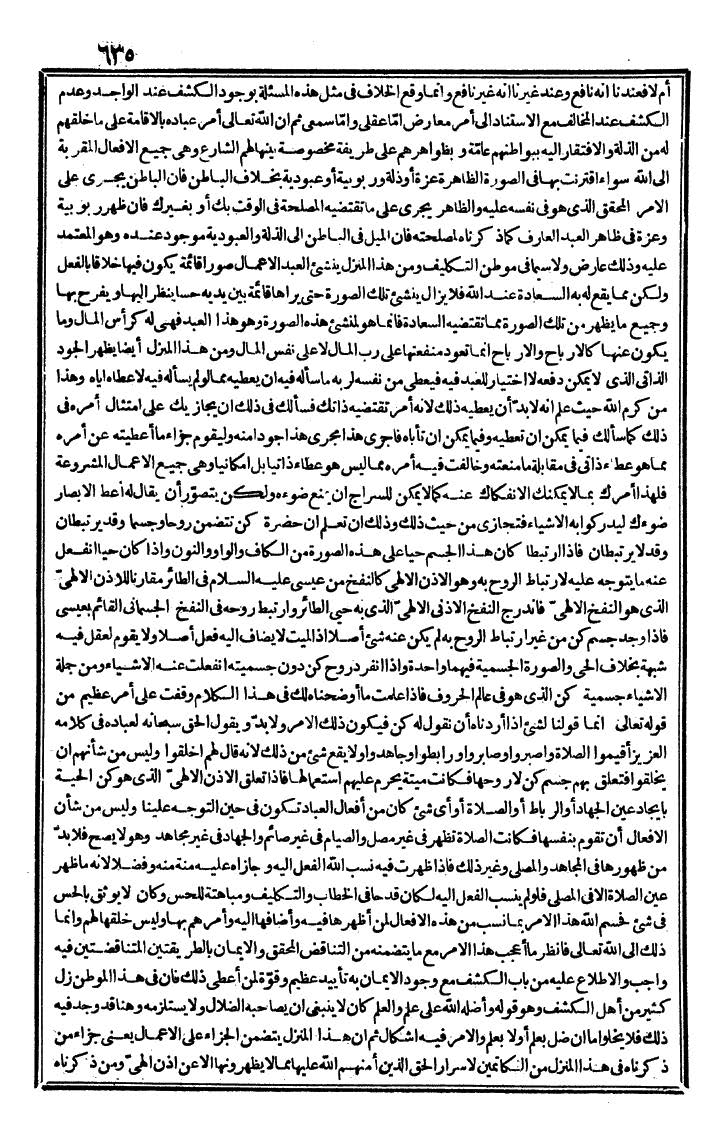 ٦٣٥
أم لا فعندنا انه نافع وعند غيرنا انه غير نافع وانما وقع الخلاف فى مثل هذه المسئلة بوجود الكشف عند الواجد وعدم
الكشف عند المخالف مع الاستناد الى أمر معارض اما عقلى واما سمعى ثم ان الله تعالى أمر عباده بالاقامة على ما خلقهم
له من الذلة والافتقار اليه ببواطنهم عامّة وبظواهرهم على طريقة مخصوصة بينها لهم الشارع وهى جميع الافعال المقربة
الى الله سواء اقترنت بها فى الصورة الظاهرة عزة أو ذلة وربوبية أو عبودية بخلاف الباطن فان الباطن يجرى على
الامر المحقق الذى هو فى نفسه عليه والظاهر يجرى على ما تقتضيه المصلحة فى الوقت بك أو بغيرك فان ظهر ربوبية
وعزة فى ظاهر العبد العارف كما ذكرناه لمصلحته فان الميل فى الباطن الى الذلة والعبودية موجود عنده وهو المعتمد
عليه وذلك عارض ولا سيما فى موطن التكليف ومن هذا المنزل ينشئ العبد الاعمال صورا قائمة يكون فيها خلاقا بالفعل
ولكن مما يقع له به السعادة عند الله فلا يزال ينشئ تلك الصورة حتى يراها قائمة بين يديه حسا ينظر اليها ويفرح بها
وجميع ما يظهر من تلك الصورة مما تقتضيه السعادة فانما هو لمنشئ هذه الصورة وهو هذا العبد فهى له كرأس المال وما
يكون عنها كالارباح والارباح انما تعود منفعتها على رب المال لا على نفس المال ومن هذا المنزل أيضا يظهر الجود
الذاتى الذى لا يمكن دفعه لا اختيار للعبد فيه فيعطى من نفسه لربه ما سأله فيه ان يعطيه مما لو لم يسأله فيه لاعطاه اياه وهذا
من كرم الله حيث علم انه لا بدّ أن يعطيه ذلك لانه أمر تقتضيه ذاتك فسألك فى ذلك ان يجازيك على امتثال أمره فى
ذلك كما سألك فيما يمكن ان تعطيه وفيما يمكن ان تأباه فاجرى هذا مجرى هذا جودا منه وليقوم جزاء ما أعطيته عن أمره
مما هو عطاء ذاتى فى مقابلة ما منعته وخالفت فيه أمره مما ليس هو عطاء ذاتيا بل امكانيا وهى جميع الاعمال المشروعة
فلهذا أمرك بما لا يمكنك الانفكاك عنه كما لا يمكن للسراج ان يمنع ضوءه ولكن يتصوّر أن يقال له أعط الابصار
ضوءك ليدركوا به الاشياء فتجازى من حيث ذلك وذلك ان تعلم ان حضرة كن تتضمن روحا وجسما وقد يرتبطان
وقد لا يرتبطان فاذا ارتبطا كان هذا الجسم حيا على هذه الصورة من الكاف والواو والنون واذا كان حيا انفعل
عنه ما يتوجه عليه لارتباط الروح به وهو الاذن الالهى كالنفخ من عيسى عليه السلام فى الطائر مقارنا للاذن الالهىّ
الذى هو النفخ الالهىّ فاندرج النفخ الاذنى الالهىّ الذى به حيى الطائر وارتبط روحه فى النفخ الجسمانى القائم بعيسى
فاذا وجد جسم كن من غير ارتباط الروح به لم يكن عنه شئ أصلا اذ الميت لا يضاف اليه فعل أصلا ولا يقوم لعقل فيه
شبهة بخلاف الحى والصورة الجسمية فيهما واحدة واذا انفرد روح كن دون جسميته انفعلت عنه الاشياء ومن جملة
الاشياء جسمية كن الذى هو فى عالم الحروف فاذا علمت ما أوضحناه لك فى هذا الكلام وقفت على أمر عظيم من
قوله تعالى انما قولنا لشئ اذا أردناه أن نقول له كن فيكون ذلك الامر ولا بدّ ويقول الحق سبحانه لعباده فى كلامه
العزيز أقيموا الصلاة واصبروا وصابروا ورابطوا وجاهدوا ولا يقع شئ من ذلك لانه قال لهم اخلقوا وليس من شأنهم ان
يخلقوا فتعلق بهم جسم كن لا روحها فكانت ميتة يحرم عليهم استعمالها فاذا تعلق الاذن الالهىّ الذى هو كن الحية
بايجاد عين الجهاد أو الرباط أو الصلاة أو أى شئ كان من أفعال العباد تكون فى حين التوجه علينا وليس من شأن
الافعال أن تقوم بنفسها فكانت الصلاة تظهر فى غير مصل والصيام فى غير صائم والجهاد فى غير مجاهد وهو لا يصح فلا بدّ
من ظهورها فى المجاهد والمصلى وغير ذلك فاذا ظهرت فيه نسب الله الفعل اليه وجازاه عليه منة منه وفضلا لانه ما ظهر
عين الصلاة الا فى المصلى فلو لم ينسب الفعل اليه لكان قدحا فى الخطاب والتكليف ومباهتة للحس وكان لا يوثق بالحس
فى شئ فحسم الله هذا الامر بما نسب من هذه الافعال لمن أظهرها فيه وأضافها اليه وأمرهم بها وليس خلقها لهم وانما
ذلك الى الله تعالى فانظر ما أعجب هذا الامر مع ما يتضمنه من التناقض المحقق والايمان بالطريقتين المتناقضتين فيه
واجب والاطلاع عليه من باب الكشف مع وجود الايمان به تأييد عظيم وقوة لمن أعطى ذلك فان فى هذا الموطن زل
كثير من أهل الكشف وهو قوله وأضله الله على علم والعلم كان لا ينبغى ان يصاحبه الضلال ولا يستلزمه وهنا قد وجد فيه
ذلك فلا يخلو اما ان ضل بعلم أو لا بعلم والامر فيه اشكال ثم ان هذا المنزل يتضمن الجزاء على الاعمال يعنى جزاء من
ذكرناه فى هذا المنزل من الكاتمين لاسرار الحق الذين أمنهم الله عليها مما لا يظهرونها الا عن اذن الهىّ ومن ذكرناه